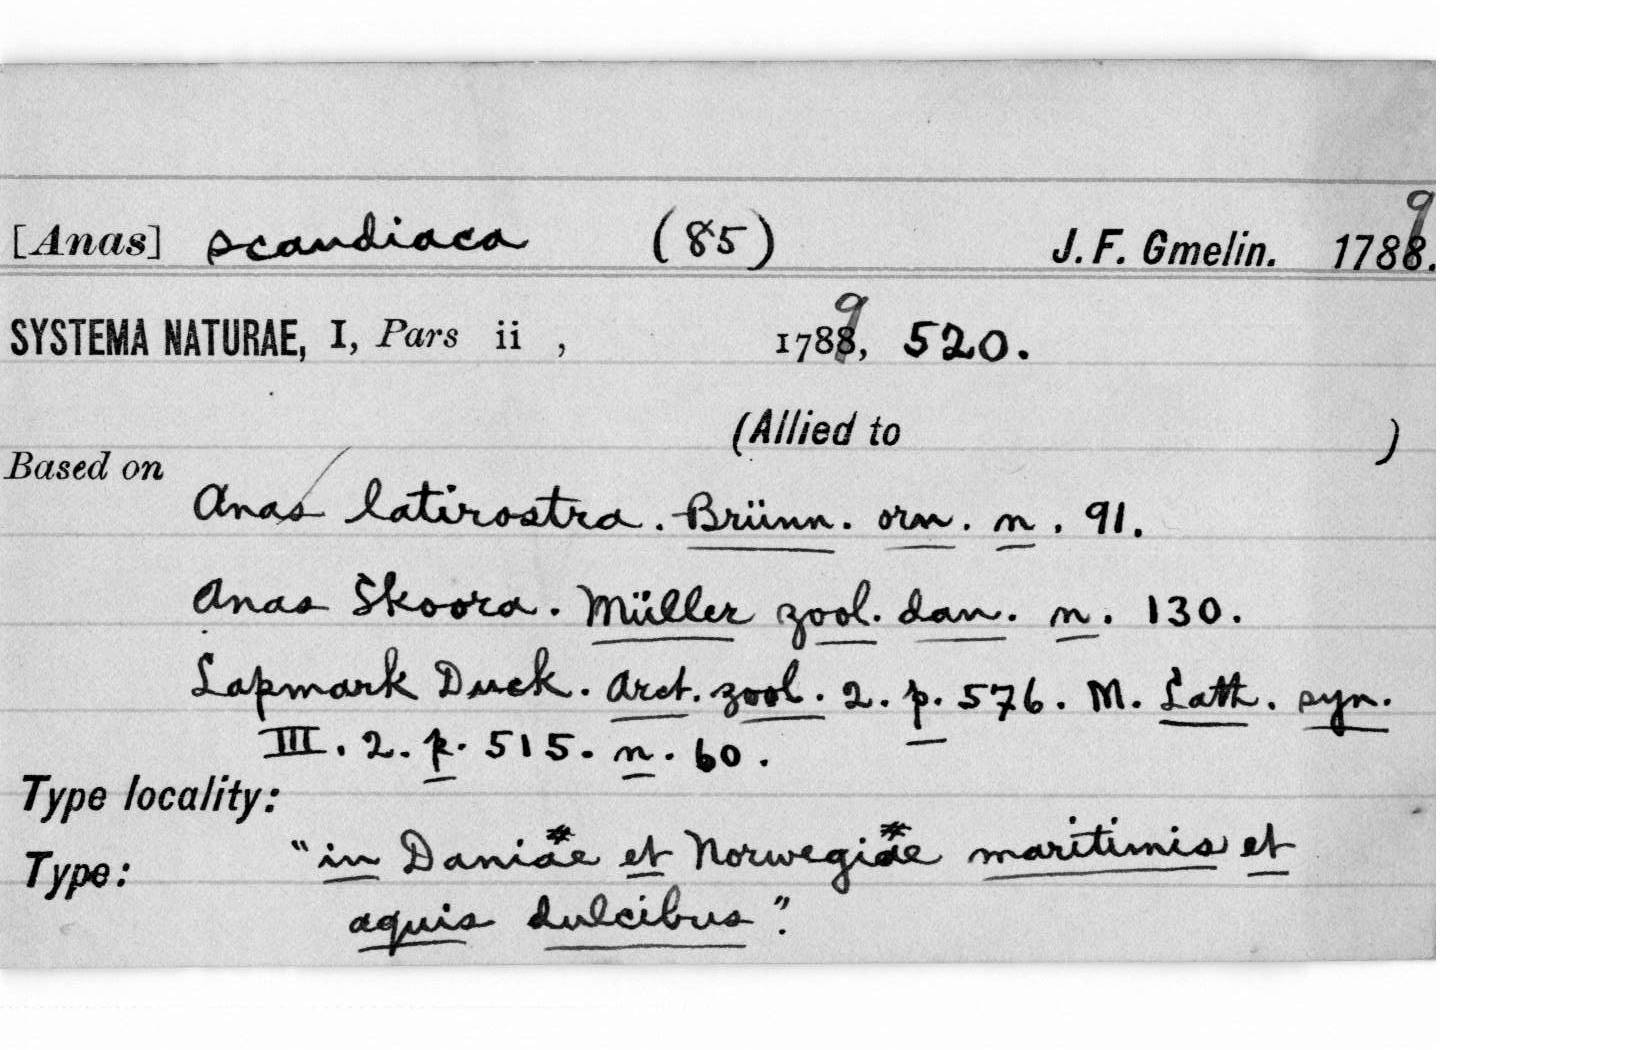 [Anas] scandiaca (85) J. F. Gmelin. 1789.
SYSTEMA NATURAE, I, Pars ii , 1789, 520.
(Allied to )
Based on
Anas latirostra. Brünn. orn. n. 91.
Anas Skoora. Müller zool. dan. n. 130.
Lapmark Duck. Arct. zool. 2. p. 576. M. Lath. syn.
III. 2. p. 515. n. 60.
Type locality:
"in Daniae et Norwegiae maritimis et
Type:
aquis dulcibus".